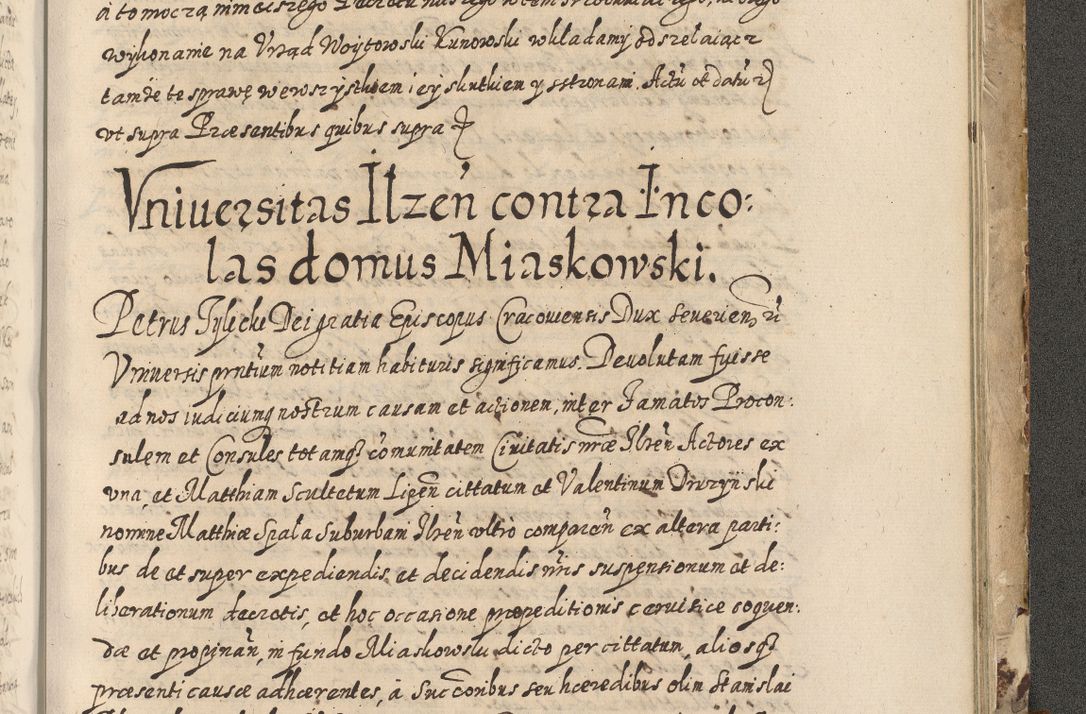 wykonanie na Vrząd Woytowski Kunowski wkładamy odszelaiącz
tamże te sprawę we wszystkiem i iey skutkiem y stronami. Actū et datū
vt supra Præsentibus quibus supra
Vniuersitas Ilzeń contra Inco:
las domus Miaskowski.
Petrus Tylicki Dei gratia Episcopus Cracouiensis Dux Seuerien̄
Vniuersis pr̄ntium notitiam habituris significamus. Deuolutam fuisse
ad nos iudiciumq̃ nostrum causam et actionem, inter Famatos Procon:
sulem et Consules totamq̃ com̄unitatem Ciuitatis nr̄æ Ilzen̄ Actores ex
vna, et Matthiam Scultetum Lipen̄ cittatum et Valentinum Druzyński
nomine Matthiæ Spala Suburbani Ilzen̄ vltro comparen̄ ex altera parti:
bus de et super expediendis et decidendis nr̄is suspensionum et de:
liberationum decretis, et hoc occasione propeditionis ceruisiæ coquen:
dæ et propinan̄, in fundo Miaskowski dicto per cittatum, aliosq̃
præsenti causæ adhærentes, a Succ̄oribus seu hæredibus olim Stanislai